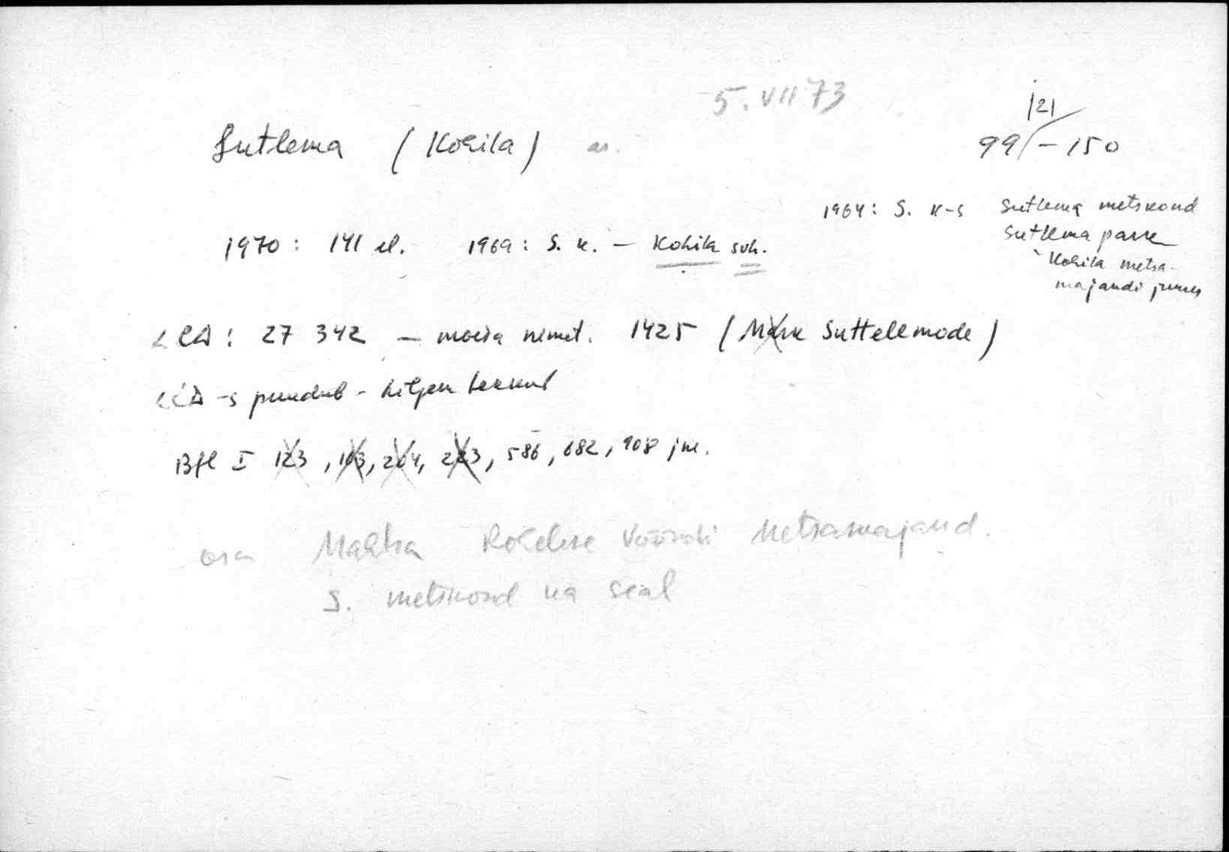 5. VII 73
Sutlema (Kohila) as.
121
99/-150
1964: S. k-s Sutlema metskond
Sutlema park
Kohila metsa-
majandi juures
1970: 141 el. 1969: S. k. - Kohila svh.
LCD: 27 342 - mõisa nimet. 1425 ( Suttelemode)
LCD-s puudub - hiljem
Bfl I 123, 163, 204, 223, 586, 682, 908 jm.
osa Metsamajand.
S. metskond ka seal